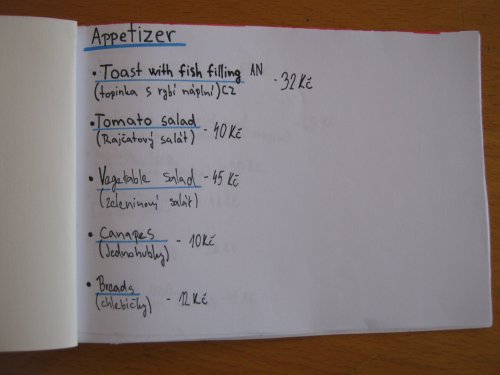 Appetizer
• Toast with fish filling AN - 32 Kč
(topinka s rybí náplní) CZ
• Tomato salad - 40 Kč
(Rajčatový salát)
• Vegetable salad - 45 Kč
(zeleninový salát)
• Canapes - 10 Kč
(Jednohubky)
• Breads - 12 Kč
(chlebíčky)